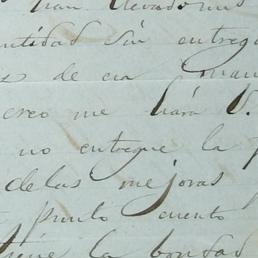 han llevado mis
entidad sin entrega
de esa man
creo me hará V.
no entregue la
de las mejoras
punto cuento
tiene la bondad